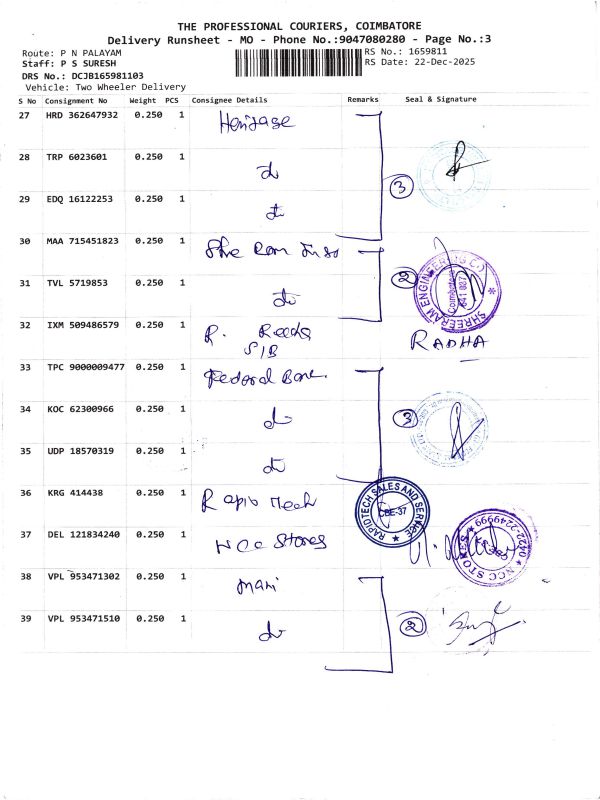 THE PROFESSIONAL COURIERS, COIMBATORE
Delivery Runsheet - MO - Phone No.:9047080280 - Page No.:3
Route: P N PALAYAM RS No.: 1659811
Staff: P S SURESH RS Date: 22-Dec-2025
DRS No.: DCJB165981103
Vehicle: Two Wheeler Delivery
S No Consignment No Weight PCS Consignee Details Remarks Seal & Signature
27 HRD 362647932 0.250 1 Heritage
28 TRP 6023601 0.250 1 do
3
29 EDQ 16122253 0.250 1 do
30 MAA 715451823 0.250 1
2
SHREERAM ENGINEERING CO
Coimbatore
31 TVL 5719853 0.250 1 do
32 IXM 509486579 0.250 1 R. Radha
SIB
RADHA
33 TPC 9000009477 0.250 1 Federal Bank
34 KOC 62300966 0.250 1 do
3
35 UDP 18570319 0.250 1 do
36 KRG 414438 0.250 1 Rapid Tech
RAPIDTECH SALES AND SERVICE
CBE-37
37 DEL 121834240 0.250 1 NCC Stores
NCC STORES
38 VPL 953471302 0.250 1 Mani
39 VPL 953471510 0.250 1 do
2